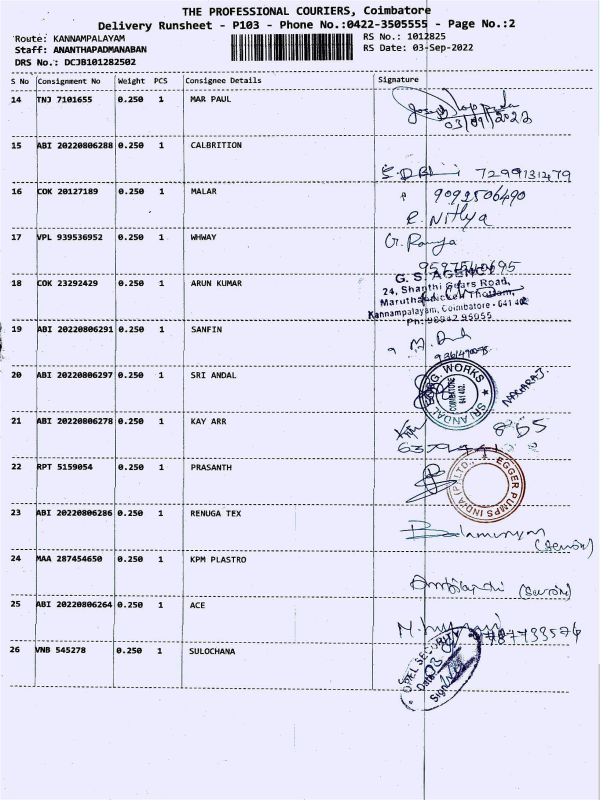 THE PROFESSIONAL COURIERS, Coimbatore
Delivery Runsheet - P103 - Phone No.:0422-3505555 - Page No.:2
Route: KANNAMPALAYAM
RS No.: 1012825
Staff: ANANTHAPADMANABAN
RS Date: 03-Sep-2022
DRS No.: DCJB101282502
S No Consignment No Weight PCS Consignee Details Signature
14 TNJ 7101655 0.250 1 MAR PAUL
03/09/2022
15 ABI 20220806288 0.250 1 CALBRITION
7299131479
16 COK 20127189 0.250 1 MALAR
9092506490
R. Nithya
17 VPL 939536952 0.250 1 WHWAY
G. Ramya
18 COK 23292429 0.250 1 ARUN KUMAR
G. S. AGENCY
24, Shanthi Gears Road,
Kannampalayam, Coimbatore - 641 402
19 ABI 20220806291 0.250 1 SANFIN
20 ABI 20220806297 0.250 1 SRI ANDAL
SRI ANDAL ENGG. WORKS
COIMBATORE
641 402.
NAGARAJ.
21 ABI 20220806278 0.250 1 KAY ARR
22 RPT 5159054 0.250 1 PRASANTH
EGGER PUMPS INDIA (P) LTD.,
23 ABI 20220806286 0.250 1 RENUGA TEX
24 MAA 287454650 0.250 1 KPM PLASTRO
25 ABI 20220806264 0.250 1 ACE
26 VNB 545278 0.250 1 SULOCHANA
SECURITY
Date
Sign